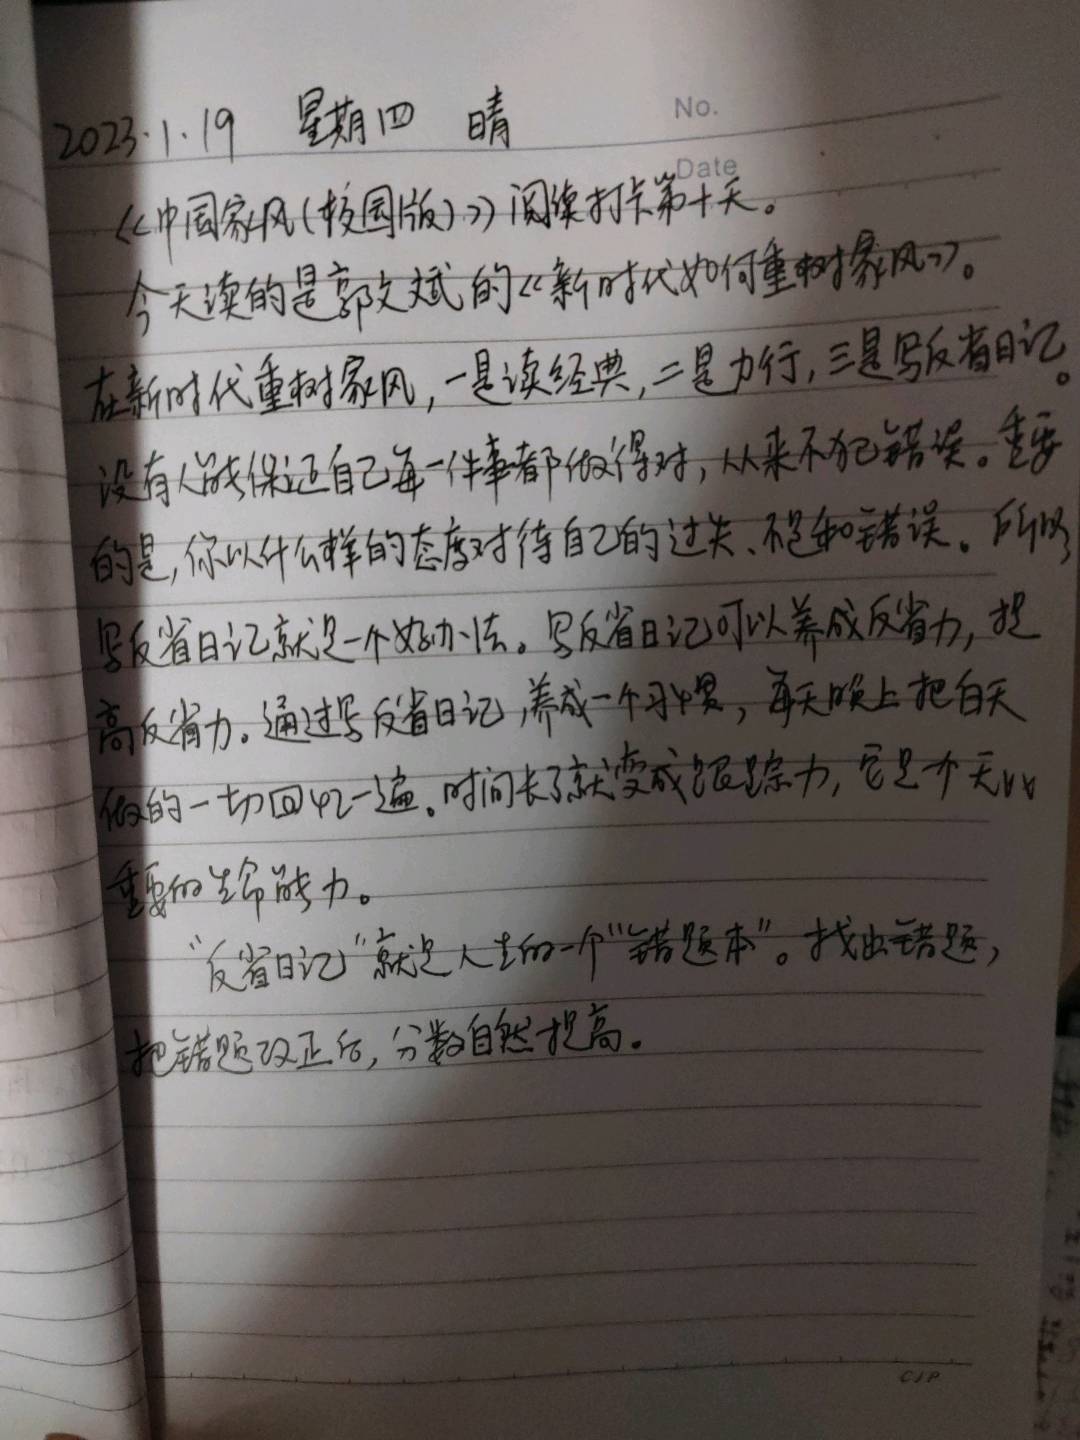 No.
2023.1.19 星期四 晴
Date
《中国家风(校园版)》阅读打卡第十天。
今天读的是郭文斌的《新时代如何重树家风》。
在新时代重树家风，一是读经典，二是力行，三是写反省日记。
没有人能保证自己每一件事都做得对，从来不犯错误。重要
的是，你以什么样的态度对待自己的过失、不足和错误。所以
写反省日记就是一个好办法。写反省日记可以养成反省力，提
高反省力。通过写反省日记，养成一个习惯，每天晚上把白天
做的一切回忆一遍。时间长了就变成跟踪力，它是个无比
重要的生命能力。
“反省日记”就是人生的一个“错题本”。找出错题，
把错题改正后，分数自然提高。
CJP